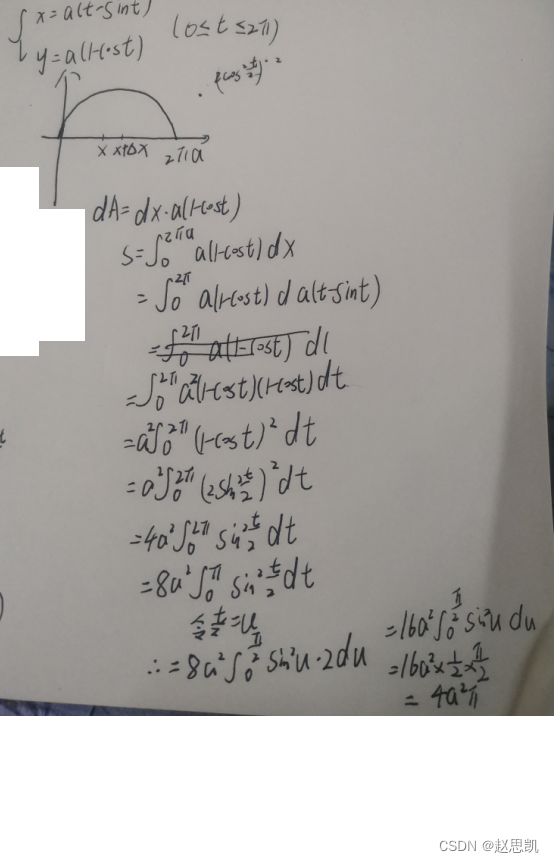 x=a(t-sint)
y=a(1-cost) (0≤t≤2π)
x x+Δx 2πa
dA=dx·a(1-cost)
S=∫₀^{2πa} a(1-cost)dx
=∫₀^{2π} a(1-cost)d a(t-sint)
=∫₀^{2π} a²(1-cost)(1-cost)dt
=a²∫₀^{2π}(1-cost)²dt
=a²∫₀^{2π}(2sin²t/2)²dt
=4a²∫₀^{2π}sin²t/2dt
=8a²∫₀^{π}sin²t/2dt
令t/2=u
∴=8a²∫₀^{π/2}sin²u·2du
=16a²∫₀^{π/2}sin²u du
=16a²×1/2×π/2
=4a²π
CSDN @赵思凯